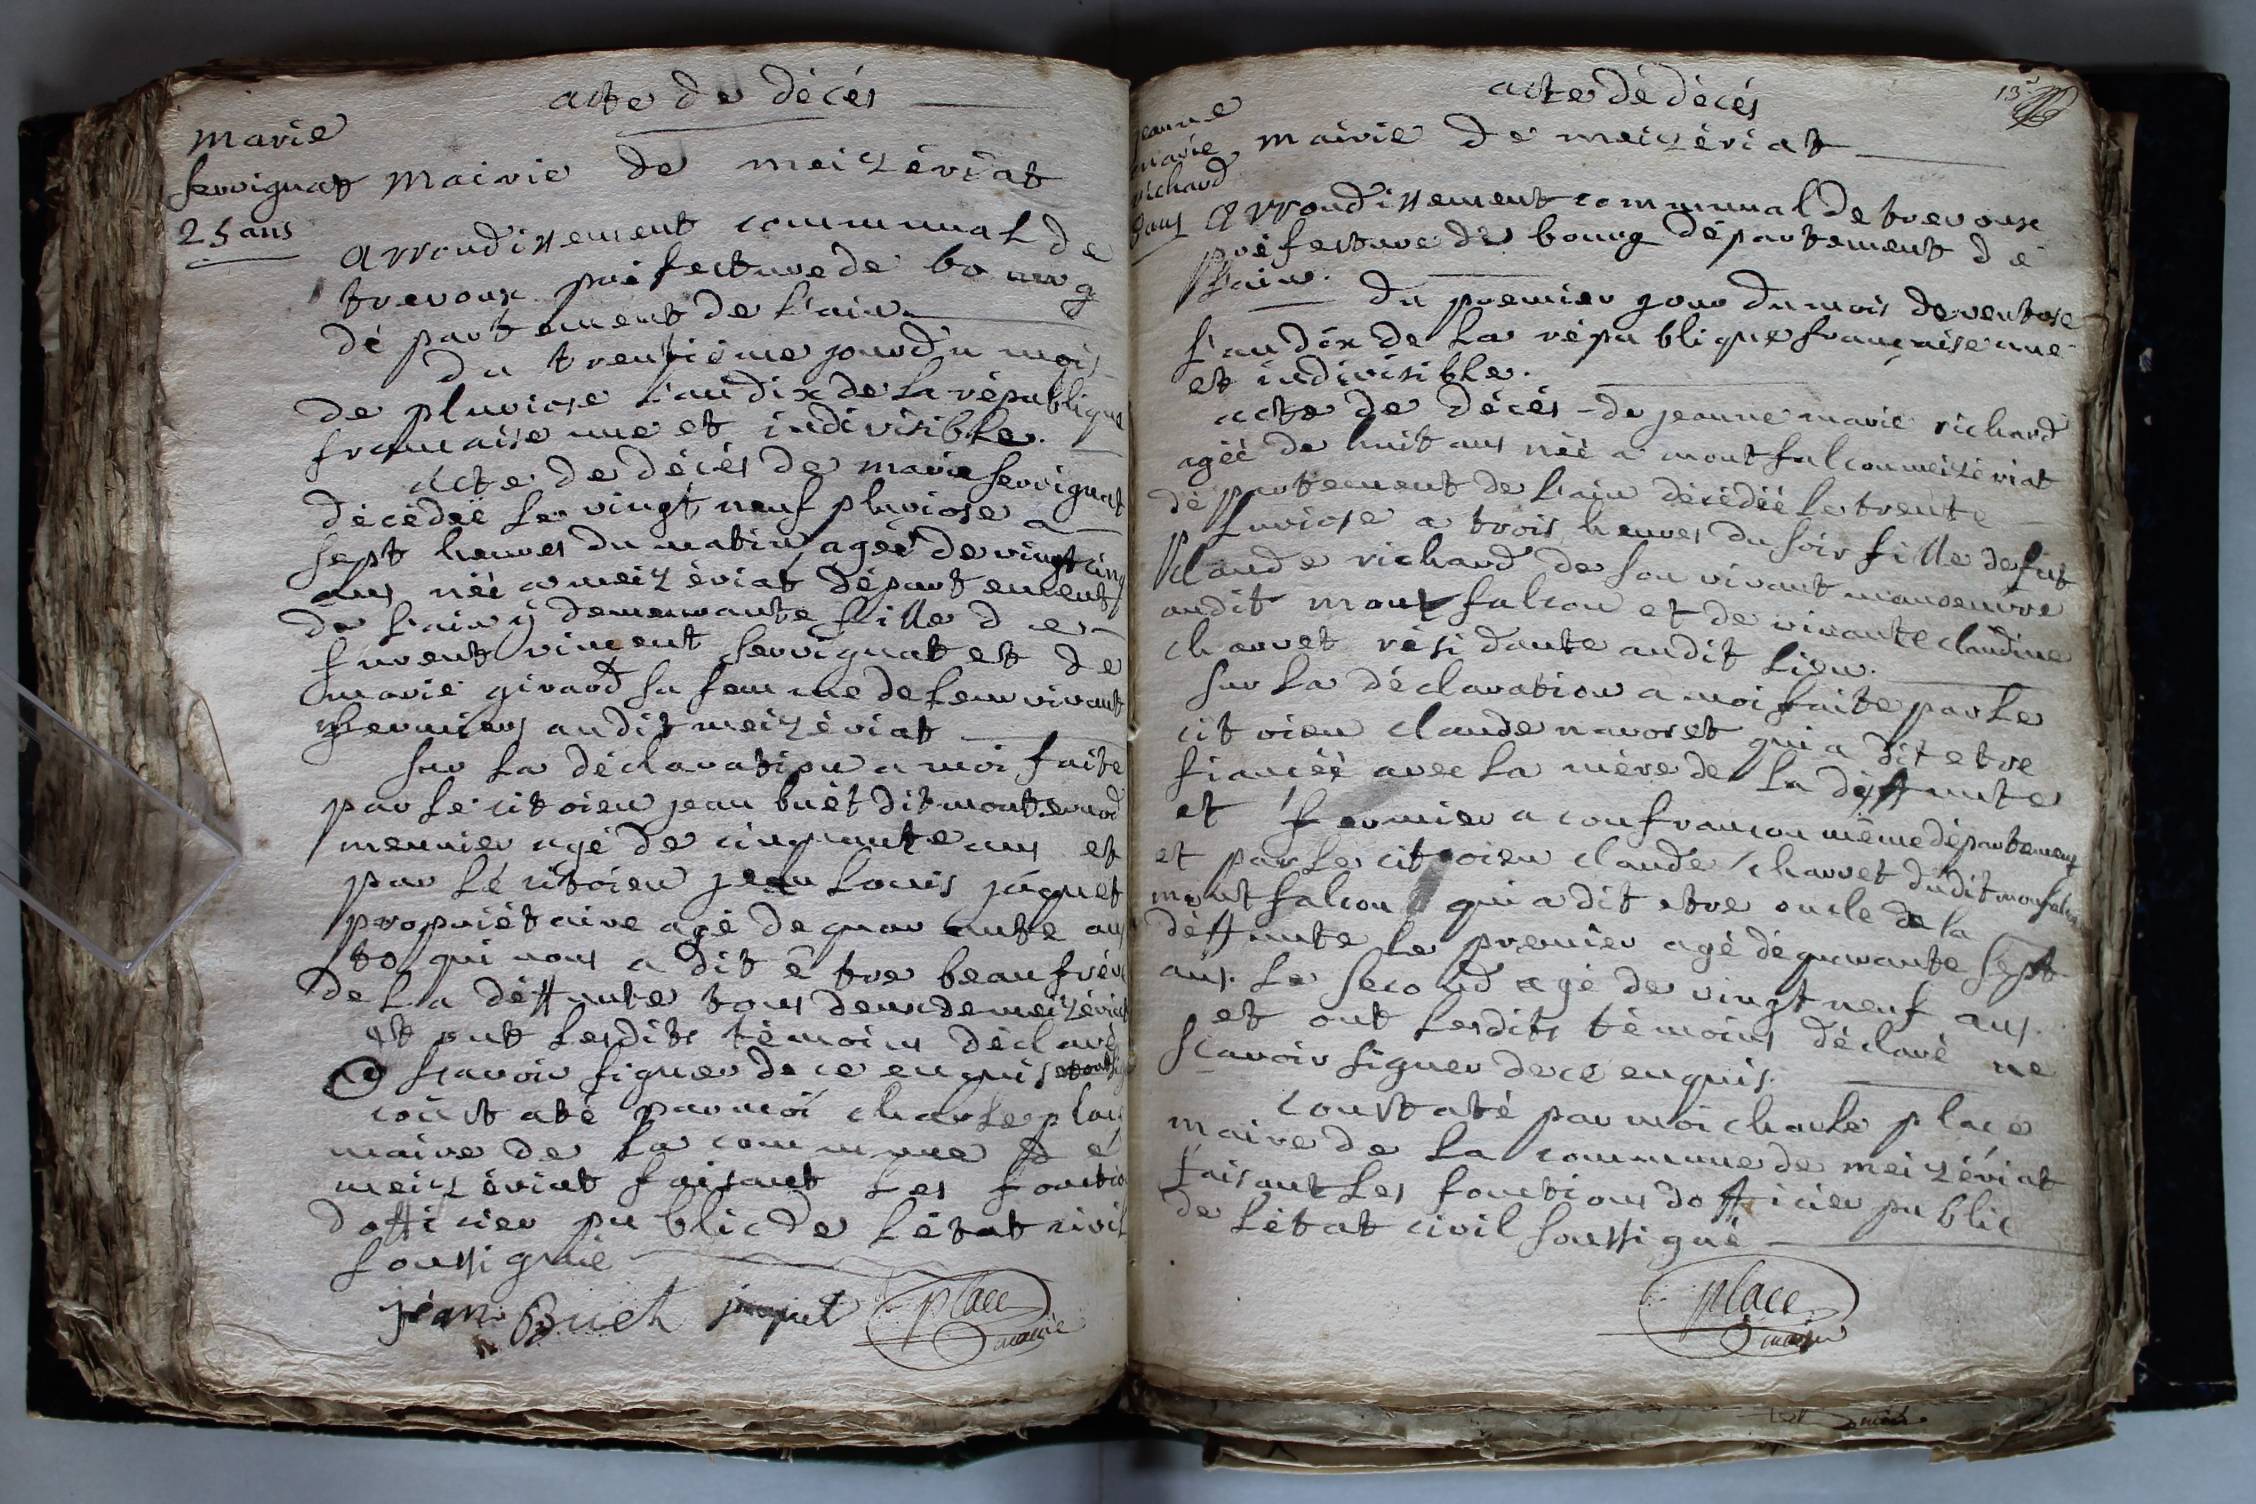 acte de décés
marie
servignat
25 ans
mairie de meizériat
arrondissement communal de
trevoux préfecture de bourg
département de l'ain
du trentième jour du mois
de pluviose l'an dix de la république
française une et indivisible.
acte de décés de marie servignat
décédéé le vingt neuf pluviose a
sept heures du matin, agéé de vingt cinq
ans néé a meizériat département
de l'ain y demeurante fille de
furent vincent servignat et de
marie girard sa femme de leur vivant
fermiers audit meizériat
sur la déclaration a moi faite
par le citoien jean buét dit monternod
meunier agé de cinquante ans et
par le citoien jean louis jáquet
propriétaire agé de quarante ans
qui nous a dit être beaufrére
de la déffunte tous deux de meizériat
et ont lesdits témoins déclaré
sçavoir signer de ce enquis et ont
constaté par moi charle place
maire de la commune de
meizériat faisant les fonctio
dofficier public de l'état civil
soussigné
jéan Buét jaquet place
maire
acte dé décés
13
jeanne
marie
richard
8 ans
mairie de meizériat
arrondissement communal de trevoux
préfecture de bourg département dé
l'ain.
du premier jour du mois de ventose
l'an dix de la république française une
et indivisible.
acte de décés de jeanne marie richard
agéé de huit ans néé a montfalcon meizériat
département de l'ain décédéé le trente
pluviose a trois heures du soir fille de fut
claude richard de son vivant manoeuvre
audit montfalcon et de vivante claudine
charvet résidante audit lieu.
sur la déclaration a moi faite par le
citoien claude navoret qui a dit etre
fiancéé avec la mère de la déffunte
et fermier a confrancon même département
et par le citoien claude charvet dudit monfalcon
montfalcon qui a dit etre oncle de la
déffunte le premier agé de quarante sept
ans. le second agé de vingt neuf ans.
et ont lesdits témoins déclaré ne
sçavoir signer de ce enquis.
constaté par moi charle place
maire de la commune de meizériat
faisant les fonctions dofficier public
de l'état civil soussigné
place
maire